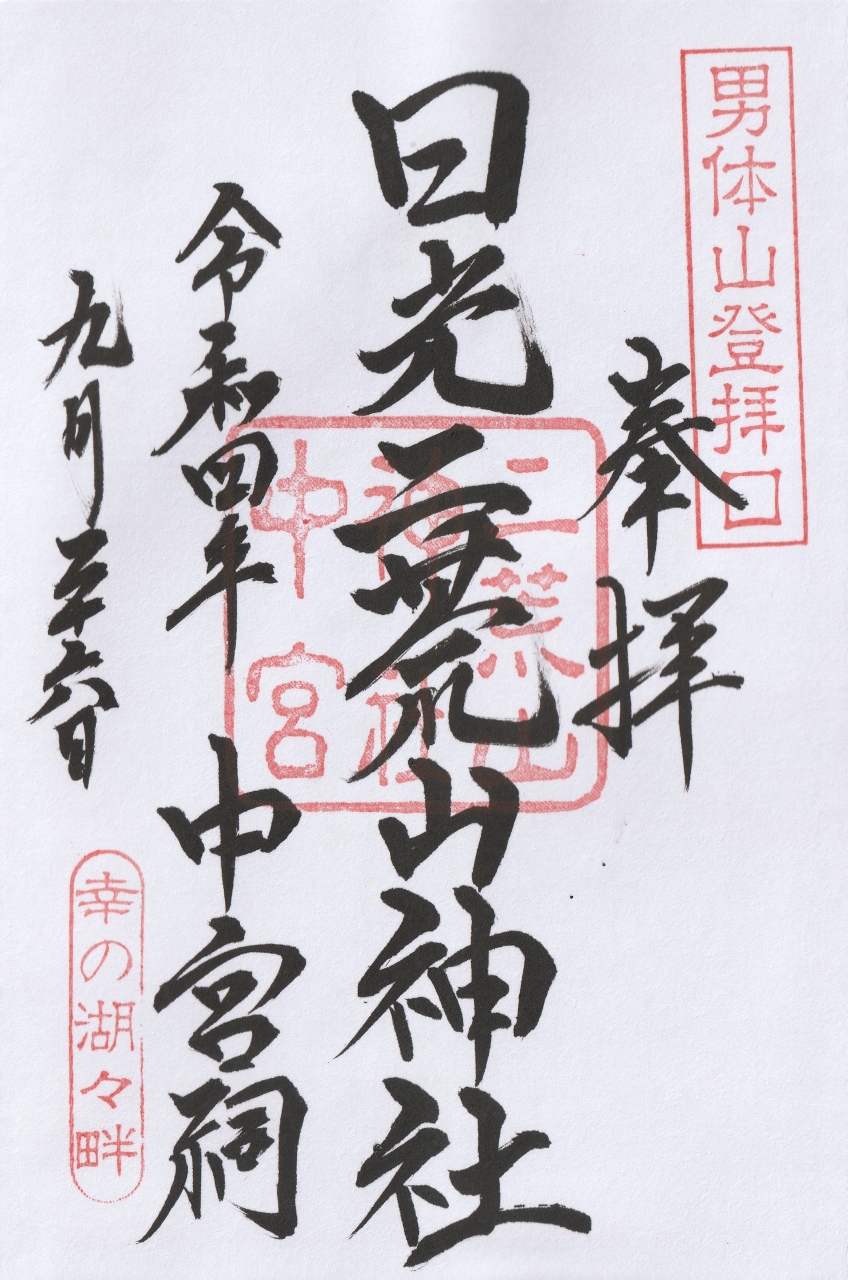 男体山登拝口
奉拝
日光二荒山神社
二荒山
神社
中宮
令和四年
九月二十六日
中宮祠
幸の湖々畔